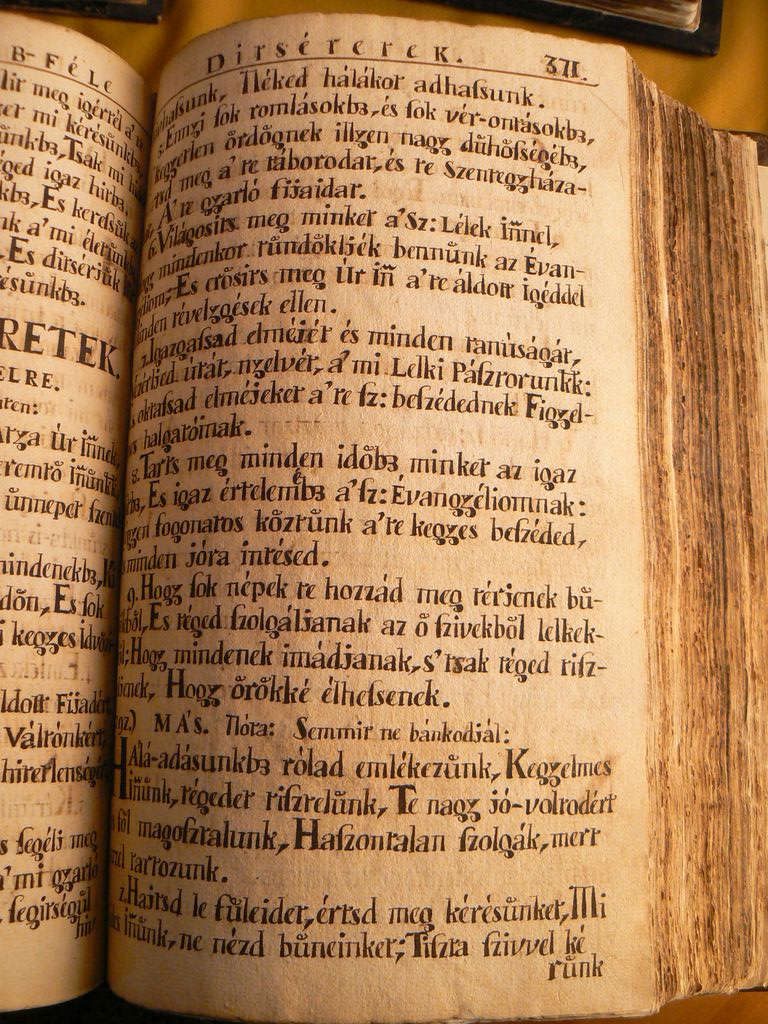 B-FÉLE
Mir meg igértél a'
mi kérésünkbȝ
ünkbȝ, Tsak mi
éged igaz hirbȝ
kbȝ, És keresük
nk a' mi életünk
Es dirsérjük
ésünkbȝ.
RETEK.
ELRE.
Úr iñnek
ünnepet szen
mindenekbȝ,
dőn, Es ſok
i kegyes idvö
ldott Fijadért
Váltónkért
hitetlenség
s ſegélj meg
a' mi gyarló
ſegitségül
Dirséretek. 371.
haſsunk, Néked hálákot adhaſsunk.
5. Ennyi ſok romlásokbȝ, és ſok vér-ontásokbȝ,
egyetlen ördögnek illyen nagy dühöſségébȝ,
tsd meg a' te táborodat, és te Szentegyháza-
A' te gyarló fijaidat.
6. Világosits meg minket a' Sz: Lélek iñnel,
gy mindenkor tündökljék bennünk az Evan-
liom, Es erősits meg Úr iñ a' te áldott igéddel
inden tévelygések ellen.
7. Igazgaſsad elméjét és minden tanúságát,
érljed útát, nyelvét, a' mi Lelki Pásztorunkk:
oktaſsad elméjeket a' te ſz: beſzédednek Figyel-
s halgatóinak.
8. Tarts meg minden időbȝ minket az igaz
bȝ, Es igaz értelembȝ a' ſz: Évangyéliomnak:
gyen foganatos köztünk a' te kegyes beſzéded,
minden jóra intésed.
9. Hogy ſok népek te hozzád meg térjenek bü-
ből, És téged ſzolgáljanak az ő ſzivekből lelkek-
l; Hogy mindenek imádjanak, s' tsak téged tiſz-
ljenek, Hogy örökké élheſsenek.
MÁS. Nóta: Semmit ne bánkodjál:
HAlá-adásunkbȝ rólad emlékezünk, Kegyelmes
iñünk, tégedet tiſztelünk, Te nagy jó-voltodért
ſől magoſztalunk, Haſzontalan ſzolgák, mert
el tartozunk.
2. Hajtsd le füleidet, értsd meg kérésünket, Mi
iñünk, ne nézd büneinket; Tiſzta ſzivvel ké
rünk